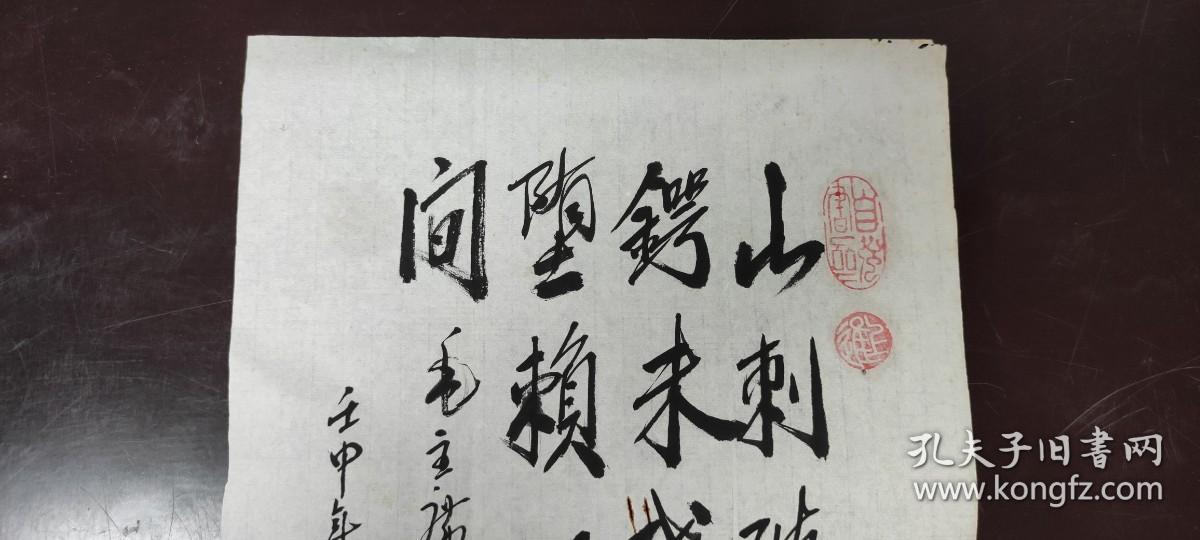 山刺破
锷未残
堕赖
间
毛主席
壬申年
孔夫子旧书网
www.kongfz.com